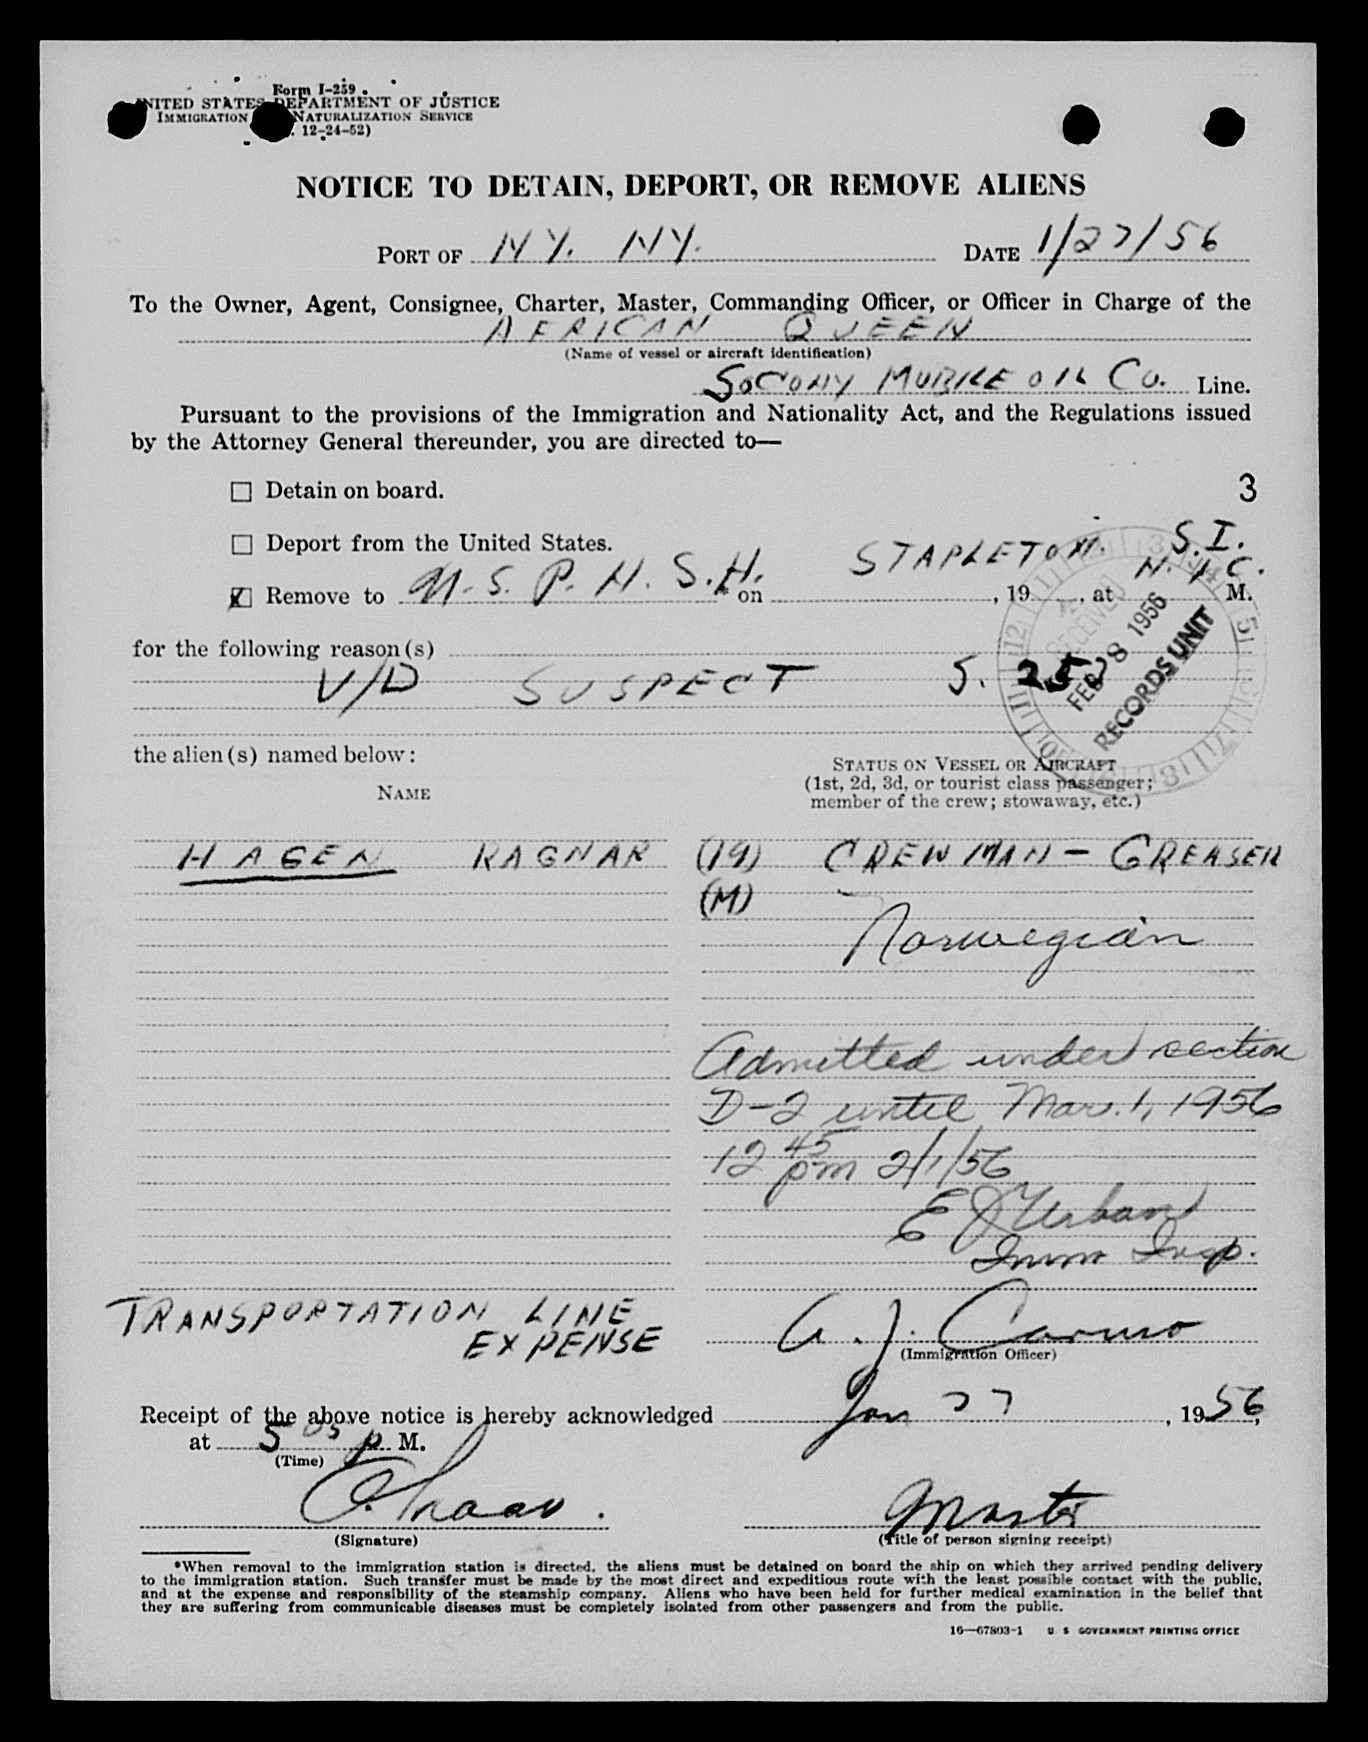 Form I-259
UNITED STATES DEPARTMENT OF JUSTICE
IMMIGRATION NATURALIZATION SERVICE
12-24-52)
NOTICE TO DETAIN, DEPORT, OR REMOVE ALIENS
PORT OF NY. NY. DATE 1/27/56
To the Owner, Agent, Consignee, Charter, Master, Commanding Officer, or Officer in Charge of the
AFRICAN QUEEN
(Name of vessel or aircraft identification)
SOCONY MOBILE OIL CO. Line.
Pursuant to the provisions of the Immigration and Nationality Act, and the Regulations issued
by the Attorney General thereunder, you are directed to—
☐ Detain on board.
3
☐ Deport from the United States.
STAPLETON. S.I.
N.Y.C.
☒ Remove to U.S.P.H.S.H.* on , 19 , at M.
for the following reason(s)
V/D SUSPECT
RECEIVED
FEB 8 1956
RECORDS UNIT
the alien(s) named below:
STATUS ON VESSEL OR AIRCRAFT
(1st, 2d, 3d, or tourist class passenger;
member of the crew; stowaway, etc.)
NAME
HAGEN RAGNAR (19) CREWMAN - GREASER
(M)
Norwegian
Admitted under section
D-2 until Mar. 1, 1956
12 45 pm 2/1/56
E J Urban
Imm Insp.
TRANSPORTATION LINE
EXPENSE
A. J. Caruso
(Immigration Officer)
Receipt of the above notice is hereby acknowledged Jan 27, 1956,
at 5 05 P. M.
(Time)
Master
(Signature) (Title of person signing receipt)
*When removal to the immigration station is directed, the aliens must be detained on board the ship on which they arrived pending delivery
to the immigration station. Such transfer must be made by the most direct and expeditious route with the least possible contact with the public,
and at the expense and responsibility of the steamship company. Aliens who have been held for further medical examination in the belief that
they are suffering from communicable diseases must be completely isolated from other passengers and from the public.
16—67803-1 U. S. GOVERNMENT PRINTING OFFICE